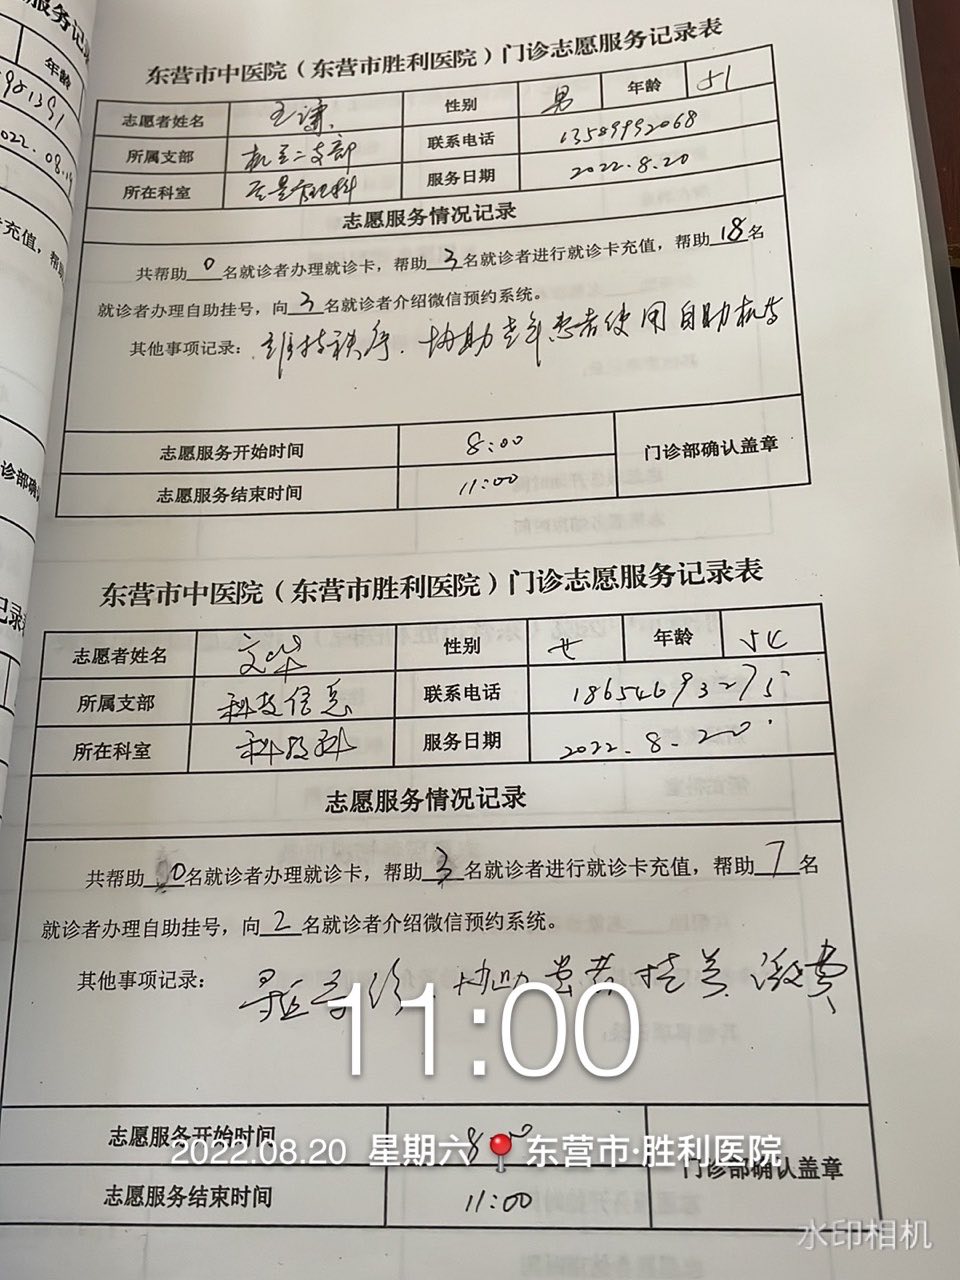 服务记录
年龄
2022.08.19
东营市中医院（东营市胜利医院）门诊志愿服务记录表
志愿者姓名 性别 男 年龄 51
所属支部 机关二支部 联系电话 13589992068
所在科室 服务日期 2022.8.20
志愿服务情况记录
共帮助 0 名就诊者办理就诊卡，帮助 3 名就诊者进行就诊卡充值，帮助 18 名
就诊者办理自助挂号，向 3 名就诊者介绍微信预约系统。
其他事项记录：维持秩序、协助老年患者使用自助机等
志愿服务开始时间 8:00 门诊部确认盖章
志愿服务结束时间 11:00
东营市中医院（东营市胜利医院）门诊志愿服务记录表
志愿者姓名 文华 性别 女 年龄 54
所属支部 科技信息 联系电话 18654693275
所在科室 科技科 服务日期 2022.8.20
志愿服务情况记录
共帮助 0 名就诊者办理就诊卡，帮助 3 名就诊者进行就诊卡充值，帮助 7 名
就诊者办理自助挂号，向 2 名就诊者介绍微信预约系统。
其他事项记录： 协助患者挂号、缴费
11:00
志愿服务开始时间 8:00 门诊部确认盖章
2022.08.20 星期六 东营市·胜利医院
志愿服务结束时间 11:00
水印相机